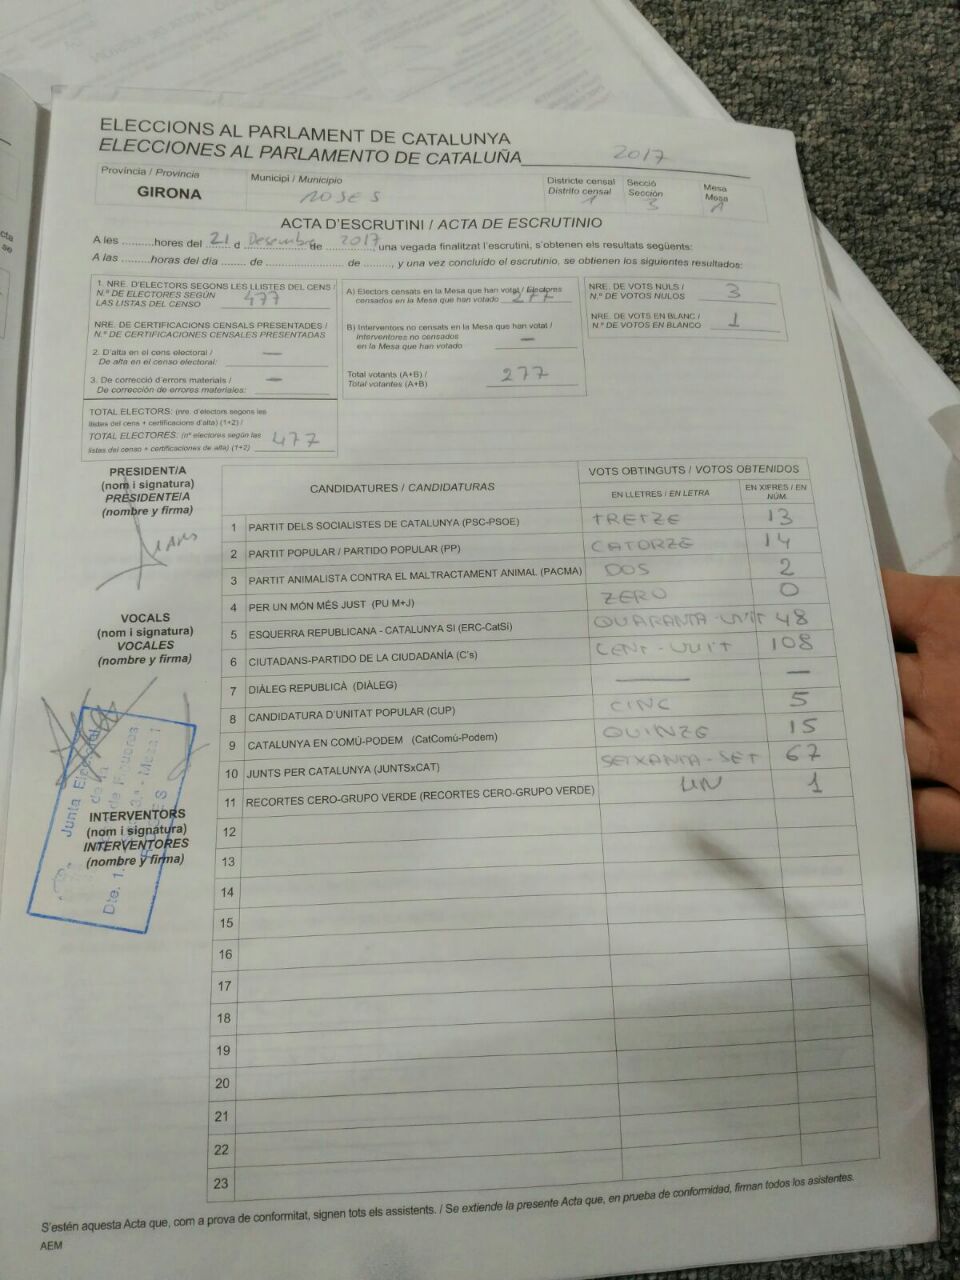 ELECCIONS AL PARLAMENT DE CATALUNYA
ELECCIONES AL PARLAMENTO DE CATALUÑA 2017
Província / Provincia
GIRONA
Municipi / Municipio
ROSES
Districte censal
Distrito censal
1
Secció
Sección
3
Mesa
Mesa
A
ACTA D'ESCRUTINI / ACTA DE ESCRUTINIO
A les ..........hores del 21 d Desembre de 2017, una vegada finalitzat l'escrutini, s'obtenen els resultats següents:
A las ..........horas del día ........ de ........................ de ........., y una vez concluido el escrutinio, se obtienen los siguientes resultados:
1. NRE. D'ELECTORS SEGONS LES LLISTES DEL CENS /
N.º DE ELECTORES SEGÚN
LAS LISTAS DEL CENSO 477
NRE. DE CERTIFICACIONS CENSALS PRESENTADES /
N.º DE CERTIFICACIONES CENSALES PRESENTADAS
2. D'alta en el cens electoral / —
De alta en el censo electoral:
3. De correcció d'errors materials / —
De corrección de errores materiales:
TOTAL ELECTORS: (nre. d'electors segons les
llistes del cens + certificacions d'alta) (1+2) /
TOTAL ELECTORES: (nº electores según las
listas del censo + certificaciones de alta) (1+2) 477
A) Electors censats en la Mesa que han votat / Electores
censados en la Mesa que han votado 277
B) Interventors no censats en la Mesa que han votat /
Interventores no censados
en la Mesa que han votado —
Total votants (A+B) /
Total votantes (A+B) 277
NRE. DE VOTS NULS /
N.º DE VOTOS NULOS 3
NRE. DE VOTS EN BLANC /
N.º DE VOTOS EN BLANCO 1
PRESIDENT/A
(nom i signatura)
PRESIDENTE/A
(nombre y firma)
VOCALS
(nom i signatura)
VOCALES
(nombre y firma)
Junta Electoral
INTERVENTORS
(nom i signatura)
INTERVENTORES
(nombre y firma)
CANDIDATURES / CANDIDATURAS
VOTS OBTINGUTS / VOTOS OBTENIDOS
EN LLETRES / EN LETRA
EN XIFRES / EN NÚM.
1 PARTIT DELS SOCIALISTES DE CATALUNYA (PSC-PSOE) TRETZE 13
2 PARTIT POPULAR / PARTIDO POPULAR (PP) CATORZE 14
3 PARTIT ANIMALISTA CONTRA EL MALTRACTAMENT ANIMAL (PACMA) DOS 2
4 PER UN MÓN MÉS JUST (PU M+J) ZERO 0
5 ESQUERRA REPUBLICANA - CATALUNYA SI (ERC-CatSí) QUARANTA-VUIT 48
6 CIUTADANS-PARTIDO DE LA CIUDADANÍA (C's) CENT-VUIT 108
7 DIÀLEG REPUBLICÀ (DIÀLEG) — —
8 CANDIDATURA D'UNITAT POPULAR (CUP) CINC 5
9 CATALUNYA EN COMÚ-PODEM (CatComú-Podem) QUINZE 15
10 JUNTS PER CATALUNYA (JUNTSxCAT) SEIXANTA-SET 67
11 RECORTES CERO-GRUPO VERDE (RECORTES CERO-GRUPO VERDE) UN 1
12
13
14
15
16
17
18
19
20
21
22
23
S'estén aquesta Acta que, com a prova de conformitat, signen tots els assistents. / Se extiende la presente Acta que, en prueba de conformidad, firman todos los asistentes.
AEM